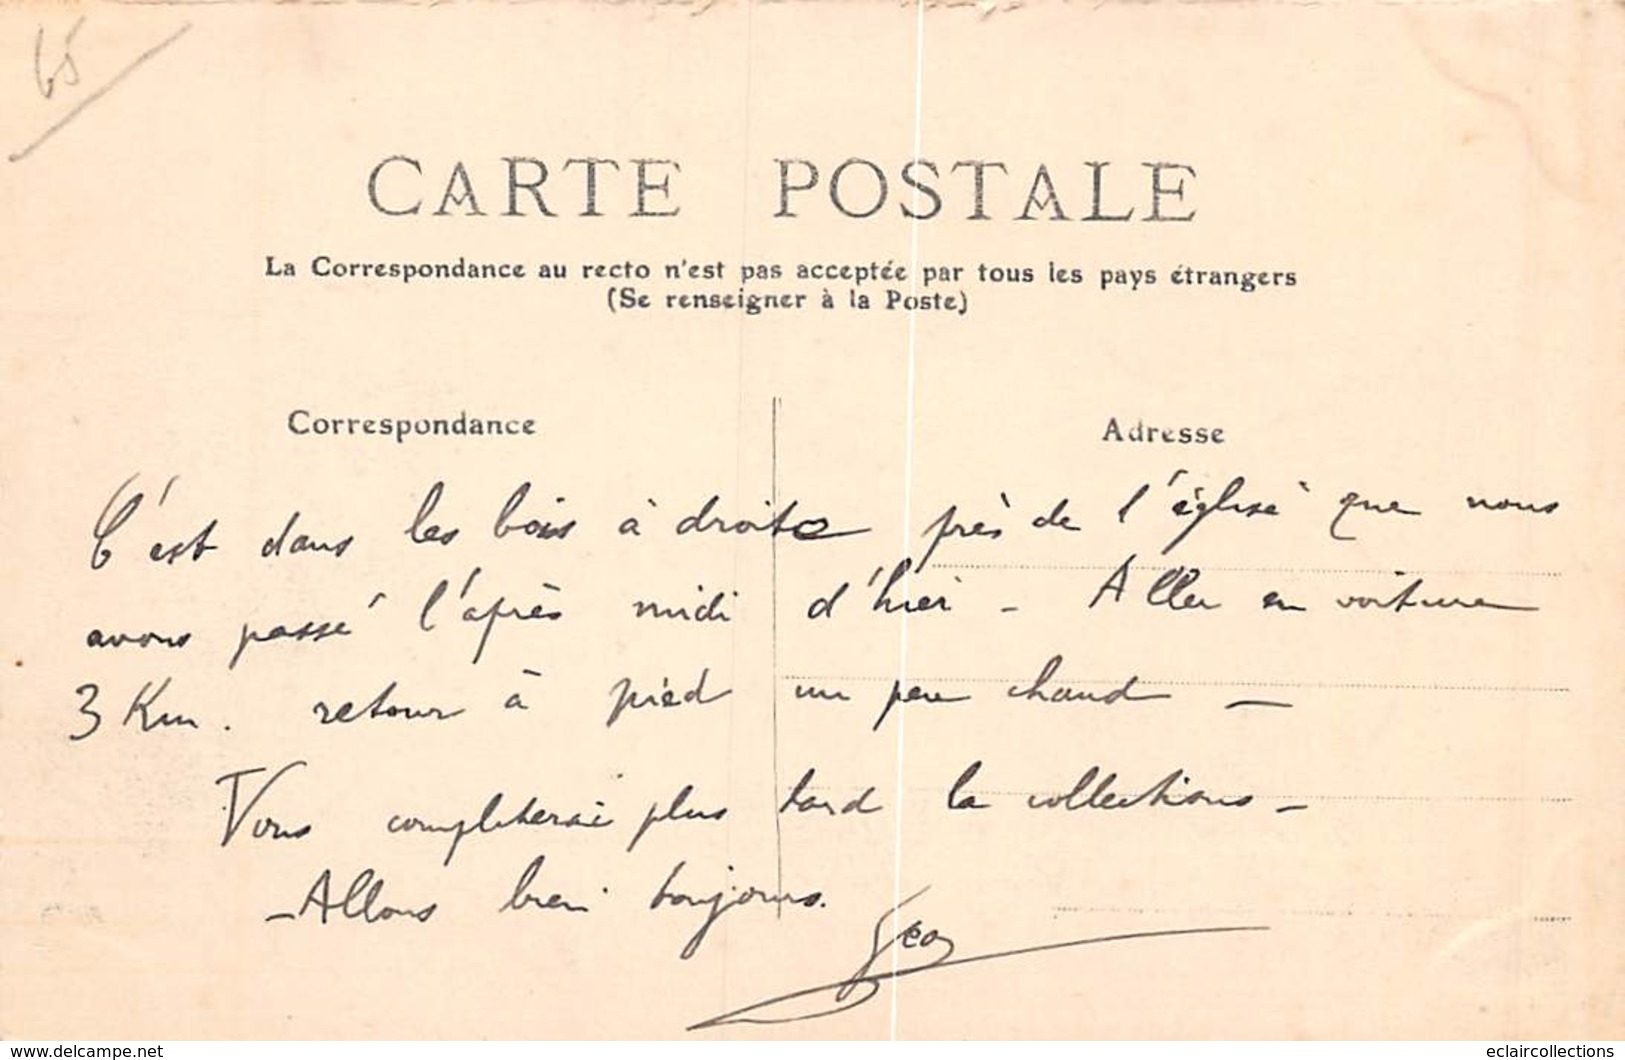 65
CARTE POSTALE
La Correspondance au recto n'est pas acceptée par tous les pays étrangers
(Se renseigner à la Poste)
Correspondance
Adresse
C'est dans les bois à droite près de l'église que nous
avons passé l'après midi d'hier - Aller en voiture
3 Km. retour à pied un peu chaud -
Vous compliterai plus tard la collections -
- Allons bien toujours.
Geo
www.delcampe.net
eclaircollections